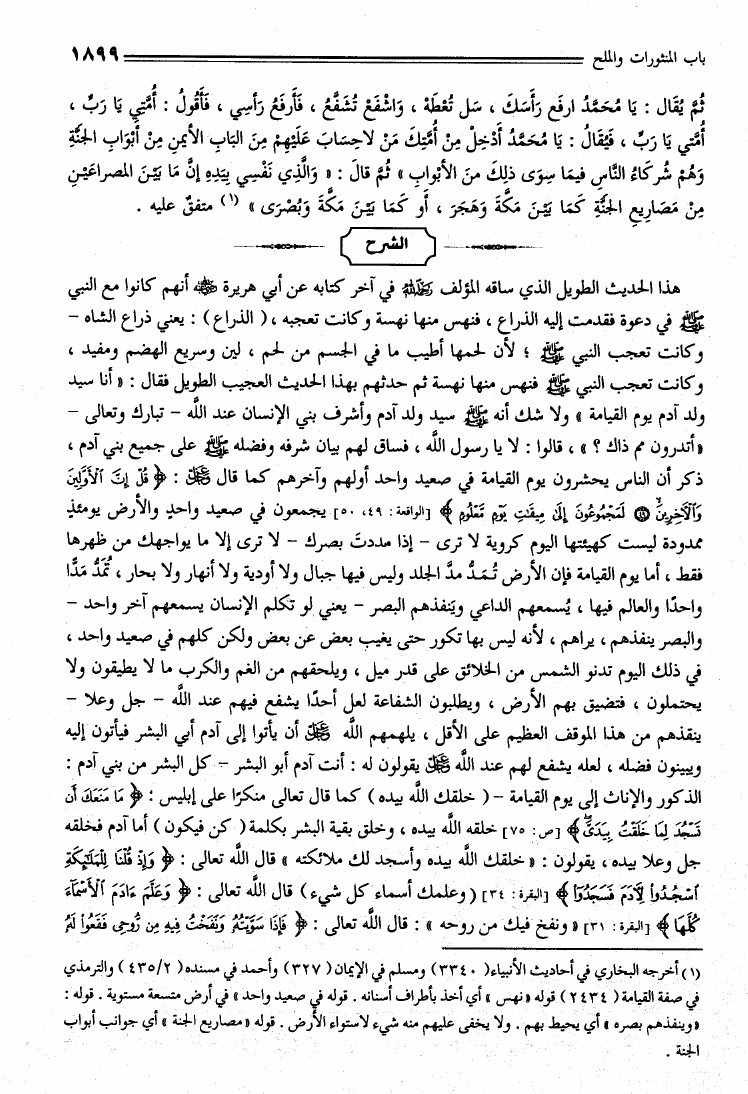 باب المنثورات والملح ١٨٩٩
ثُمَّ يُقَال : يَا مُحَمَّدُ ارفَع رَأسَكَ ، سَل تُعْطَهْ ، وَاشْفَعْ تُشَفَّعْ ، فَأَرفَعُ رَأسِي ، فَأَقُولُ : أُمَّتِي يَا رَبِّ ،
أُمَّتِي يَا رَبِّ ، فَيُقَالُ : يَا مُحَمَّدُ أَدْخِلْ مِنْ أُمَّتِكَ مَنْ لاحِسَابَ عَلَيْهِمْ مِنَ البَابِ الأَيْمَنِ مِنْ أَبْوَابِ الجَنَّةِ
وَهُمْ شُرَكَاءُ النَّاسِ فِيمَا سِوَى ذلِكَ منَ الأَبْوابِ » ثُمَّ قالَ : « وَالَّذِي نَفْسِي بِيَدِهِ إِنَّ مَا بَيْنَ المصراعَيْنِ
مِنْ مَصَارِيعِ الجَنَّةِ كَمَا بَيْنَ مَكَّةَ وَهَجَرَ ، أَو كَمَا بَيْنَ مَكَّةَ وَبُصْرَى » (١) متفقٌ عليه .
الشرح
هذا الحديث الطويل الذي ساقه المؤلف رحمه الله في آخر كتابه عن أبي هريرة رضي الله عنه أنهم كانوا مع النبي
ﷺ في دعوة فقدمت إليه الذراع ، فنهس منها نهسة وكانت تعجبه ، ( الذراع ) : يعني ذراع الشاه –
وكانت تعجب النبي ﷺ ؛ لأن لحمها أطيب ما في الجسم من لحم ، لين وسريع الهضم ومفيد ،
وكانت تعجب النبي ﷺ فنهس منها نهسة ثم حدثهم بهذا الحديث العجيب الطويل فقال : « أنا سيد
ولد آدم يوم القيامة » ولا شك أنه ﷺ سيد ولد آدم وأشرف بني الإنسان عند اللَّه – تبارك وتعالى –
«أتدرون مم ذاك ؟ » ، قالوا : لا يا رسول اللَّه ، فساق لهم بيان شرفه وفضله ﷺ على جميع بني آدم ،
ذكر أن الناس يحشرون يوم القيامة في صعيد واحد أولهم وآخرهم كما قال : ﴿ قُلْ إِنَّ الْأَوَّلِينَ
وَالْآخِرِينَ ۝ لَمَجْمُوعُونَ إِلَىٰ مِيقَاتِ يَوْمٍ مَّعْلُومٍ ﴾ [الواقعة : ٤٩، ٥٠] يجمعون في صعيد واحدٍ والأرض يومئذٍ
ممدودة ليست كهيئتها اليوم كروية لا ترى – إذا مددتَ بصرك – لا ترى إلا ما يواجهك من ظهرها
فقط ، أما يوم القيامة فإن الأرض تُمَدُّ مدَّ الجلد وليس فيها جبال ولا أودية ولا أنهار ولا بحار ، تُمَدُّ مَدًّا
واحدًا والعالم فيها ، يُسمعهم الداعي ويَنفذهم البصر – يعني لو تكلم الإنسان يسمعهم آخر واحد –
والبصر ينفذهم ، يراهم ، لأنه ليس بها تكور حتى يغيب بعض عن بعض ولكن كلهم في صعيد واحد ،
في ذلك اليوم تدنو الشمس من الخلائق على قدر ميل ، ويلحقهم من الغم والكرب ما لا يطيقون ولا
يحتملون ، فتضيق بهم الأرض ، ويطلبون الشفاعة لعل أحدًا يشفع فيهم عند اللَّه – جل وعلا –
ينقذهم من هذا الموقف العظيم على الأقل ، يلهمهم اللَّه أن يأتوا إلى آدم أبي البشر فيأتون إليه
ويبينون فضله ، لعله يشفع لهم عند اللَّه يقولون له : أنت آدم أبو البشر – كل البشر من بني آدم :
الذكور والإناث إلى يوم القيامة –( خلقك اللَّه بيده ) كما قال تعالى منكرًا على إبليس : ﴿ مَا مَنَعَكَ أَن
تَسْجُدَ لِمَا خَلَقْتُ بِيَدَيَّ ﴾ [ص: ٧٥] خلقه اللَّه بيده ، وخلق بقية البشر بكلمة ( كن فيكون ) أما آدم فخلقه
جل وعلا بيده ، يقولون : « خلقك اللَّه بيده وأسجد لك ملائكته » قال اللَّه تعالى : ﴿ وَإِذْ قُلْنَا لِلْمَلَٰئِكَةِ
اسْجُدُوا لِآدَمَ فَسَجَدُوا ﴾ [البقرة : ٣٤] ( وعلمك أسماء كل شيء ) قال اللَّه تعالى : ﴿ وَعَلَّمَ ءَادَمَ الْأَسْمَاءَ
كُلَّهَا ﴾ [البقرة : ٣١] « ونفخ فيك من روحه » : قال اللَّه تعالى : ﴿ فَإِذَا سَوَّيْتُهُ وَنَفَخْتُ فِيهِ مِن رُّوحِي فَقَعُوا لَهُ
(١) أخرجه البخاري في أحاديث الأنبياء( ٣٣٤٠) ومسلم في الإيمان (٣٢٧) وأحمد في مسنده( ٤٣٥/٢) والترمذي
في صفة القيامة ( ٢٤٣٤) قوله «نهس » أي أخذ بأطراف أسنانه . قوله في صعيد واحد » في أرض متسعة مستوية . قوله :
«وينفذهم بصره » أي يحيط بهم . ولا يخفى عليهم منه شيء لاستواء الأرض . قوله «مصاريع الجنة » أي جوانب أبواب
الجنة .